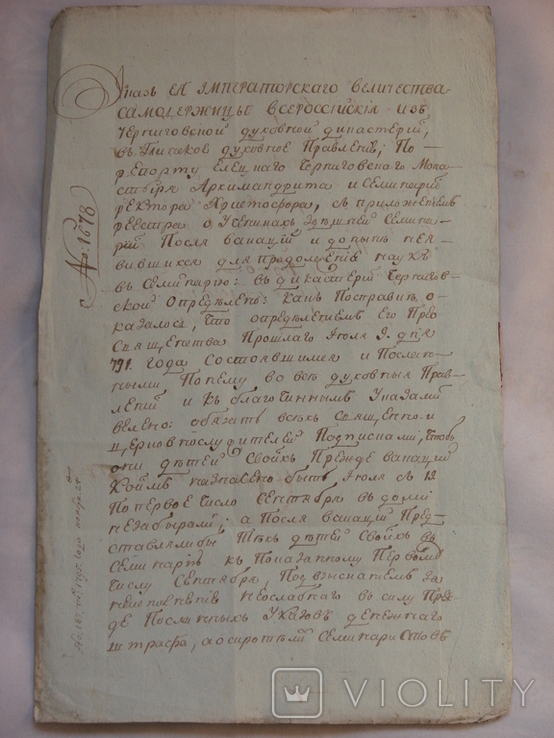 Указъ ЕЯ ИМПЕРАТОРСКАГО ВЕЛИЧЕСТВА
САМОДЕРЖИЦЫ ВСЕРОССІЙСКІЯ изъ
Черниговской духовной дикастеріи,
въ духовное Правленіе; По
репорту Елецкаго Черниговскаго Мона-
стыря Архимандрита и Семинаріи
ректора Христофора, съ приложеніемъ
реестра о ученикахъ здѣшней Семина-
ріи Послѣ ваканцій и донынѣ нея-
вившихся для продолженія наукъ
въ Семинарію: въ дикастеріи Чернигов-
ской Опредѣлено: какъ По справкѣ о-
казалось, что опредѣленіемъ Его Прео
Священства Прошлаго Іюля 9. дня
791. года состоявшимся и Послан-
ными Почему во всѣ духовныя Прав-
леній и къ благочиннымъ Указами
велено: обязать всѣхъ священно и
церковнослужителей Подписками, чтобъ
они дѣтей своихъ Прежде ваканцій
коимъ назначено быть Іюля съ 13
По первое число Сентября въ домы
незабирали; а Послѣ ваканцій Пред-
ставлялибы тѣхъ дѣтей своихъ въ
Семинарію къ Показанному Первому
числу Сентября, Подъ взысканіемъ за
неослабнаго въ силу Преж-
де Посланныхъ Указовъ денежнаго
штрафа, а осиротѣлы Семинаристовъ
№ 1678
VIOLITY